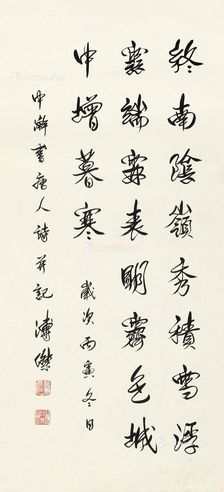 終南陰嶺秀積雪浮
雲端表明霽色城
中增暮寒 歲次丙寅冬日
中澣書唐人詩并記 溥傑